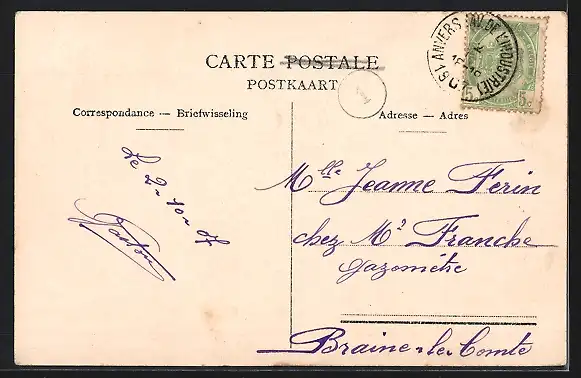 CARTE POSTALE
POSTKAART
Correspondance — Briefwisseling
Adresse — Adres
ANVERS (AV. DE L'INDUSTRIE)
5 5
Le 2-10-07
Gaston
Mlle Jeanne Ferin
chez Mr Franche
gazomètre
Braine-le-Comte